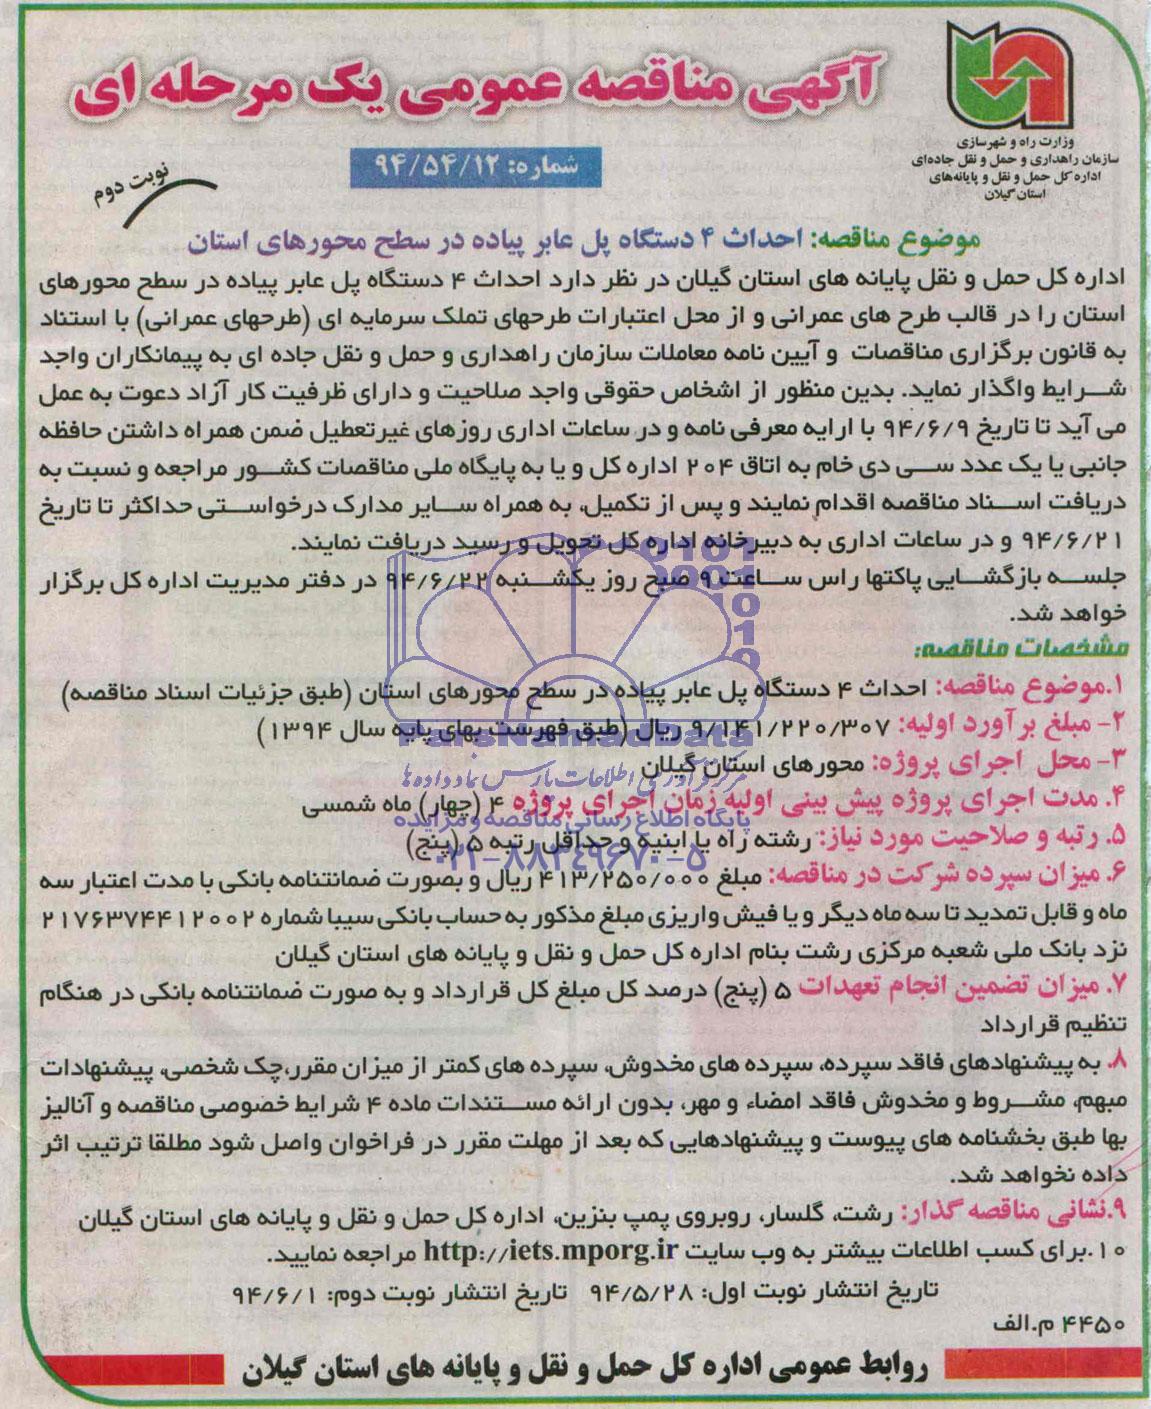 آگهی مناقصه عمومی یک مرحله ای
وزارت راه و شهرسازی
سازمان راهداری و حمل و نقل جاده‌ای
اداره کل حمل و نقل و پایانه‌های
استان گیلان
شماره: ۹۴/۵۴/۱۲
نوبت دوم
موضوع مناقصه: احداث ۴ دستگاه پل عابر پیاده در سطح محورهای استان
اداره کل حمل و نقل پایانه های استان گیلان در نظر دارد احداث ۴ دستگاه پل عابر پیاده در سطح محورهای
استان را در قالب طرح های عمرانی و از محل اعتبارات طرحهای تملک سرمایه ای (طرحهای عمرانی) با استناد
به قانون برگزاری مناقصات و آیین نامه معاملات سازمان راهداری و حمل و نقل جاده ای به پیمانکاران واجد
شرایط واگذار نماید. بدین منظور از اشخاص حقوقی واجد صلاحیت و دارای ظرفیت کار آزاد دعوت به عمل
می آید تا تاریخ ۹۴/۶/۹ با ارایه معرفی نامه و در ساعات اداری روزهای غیرتعطیل ضمن همراه داشتن حافظه
جانبی یا یک عدد سی دی خام به اتاق ۲۰۴ اداره کل و یا به پایگاه ملی مناقصات کشور مراجعه و نسبت به
دریافت اسناد مناقصه اقدام نمایند و پس از تکمیل، به همراه سایر مدارک درخواستی حداکثر تا تاریخ
۹۴/۶/۲۱ و در ساعات اداری به دبیرخانه اداره کل تحویل و رسید دریافت نمایند.
جلسه بازگشایی پاکتها راس ساعت ۹ صبح روز یکشنبه ۹۴/۶/۲۲ در دفتر مدیریت اداره کل برگزار
خواهد شد.
مشخصات مناقصه:
۱.موضوع مناقصه: احداث ۴ دستگاه پل عابر پیاده در سطح محورهای استان (طبق جزئیات اسناد مناقصه)
۲- مبلغ برآورد اولیه: ۹/۱۴۱/۲۲۰/۳۰۷ ریال (طبق فهرست بهای پایه سال ۱۳۹۴)
ParsNamadData
۳- محل اجرای پروژه: محورهای استان گیلان
مرکز فرآوری اطلاعات پارس نماد داده‌ها
۴. مدت اجرای پروژه پیش بینی اولیه زمان اجرای پروژه ۴ (چهار) ماه شمسی
پایگاه اطلاع رسانی مناقصه و مزایده
۵. رتبه و صلاحیت مورد نیاز: رشته راه یا ابنیه و حداقل رتبه ۵ (پنج)
۰۲۱-۸۸۳۴۹۶۷۰-۵
۶. میزان سپرده شرکت در مناقصه: مبلغ ۴۱۳/۲۵۰/۰۰۰ ریال و بصورت ضمانتنامه بانکی با مدت اعتبار سه
ماه و قابل تمدید تا سه ماه دیگر و یا فیش واریزی مبلغ مذکور به حساب بانکی سیبا شماره ۲۱۷۶۳۷۴۴۱۲۰۰۲
نزد بانک ملی شعبه مرکزی رشت بنام اداره کل حمل و نقل و پایانه های استان گیلان
۷. میزان تضمین انجام تعهدات ۵ (پنج) درصد کل مبلغ کل قرارداد و به صورت ضمانتنامه بانکی در هنگام
تنظیم قرارداد
۸. به پیشنهادهای فاقد سپرده، سپرده های مخدوش، سپرده های کمتر از میزان مقرر،چک شخصی، پیشنهادات
مبهم، مشروط و مخدوش فاقد امضاء و مهر، بدون ارائه مستندات ماده ۴ شرایط خصوصی مناقصه و آنالیز
بها طبق بخشنامه های پیوست و پیشنهادهایی که بعد از مهلت مقرر در فراخوان واصل شود مطلقا ترتیب اثر
داده نخواهد شد.
۹.نشانی مناقصه گذار: رشت، گلسار، روبروی پمپ بنزین، اداره کل حمل و نقل و پایانه های استان گیلان
۱۰.برای کسب اطلاعات بیشتر به وب سایت http://iets.mporg.ir مراجعه نمایید.
تاریخ انتشار نوبت اول: ۹۴/۵/۲۸ تاریخ انتشار نوبت دوم: ۹۴/۶/۱
۴۴۵۰ م.الف
روابط عمومی اداره کل حمل و نقل و پایانه های استان گیلان